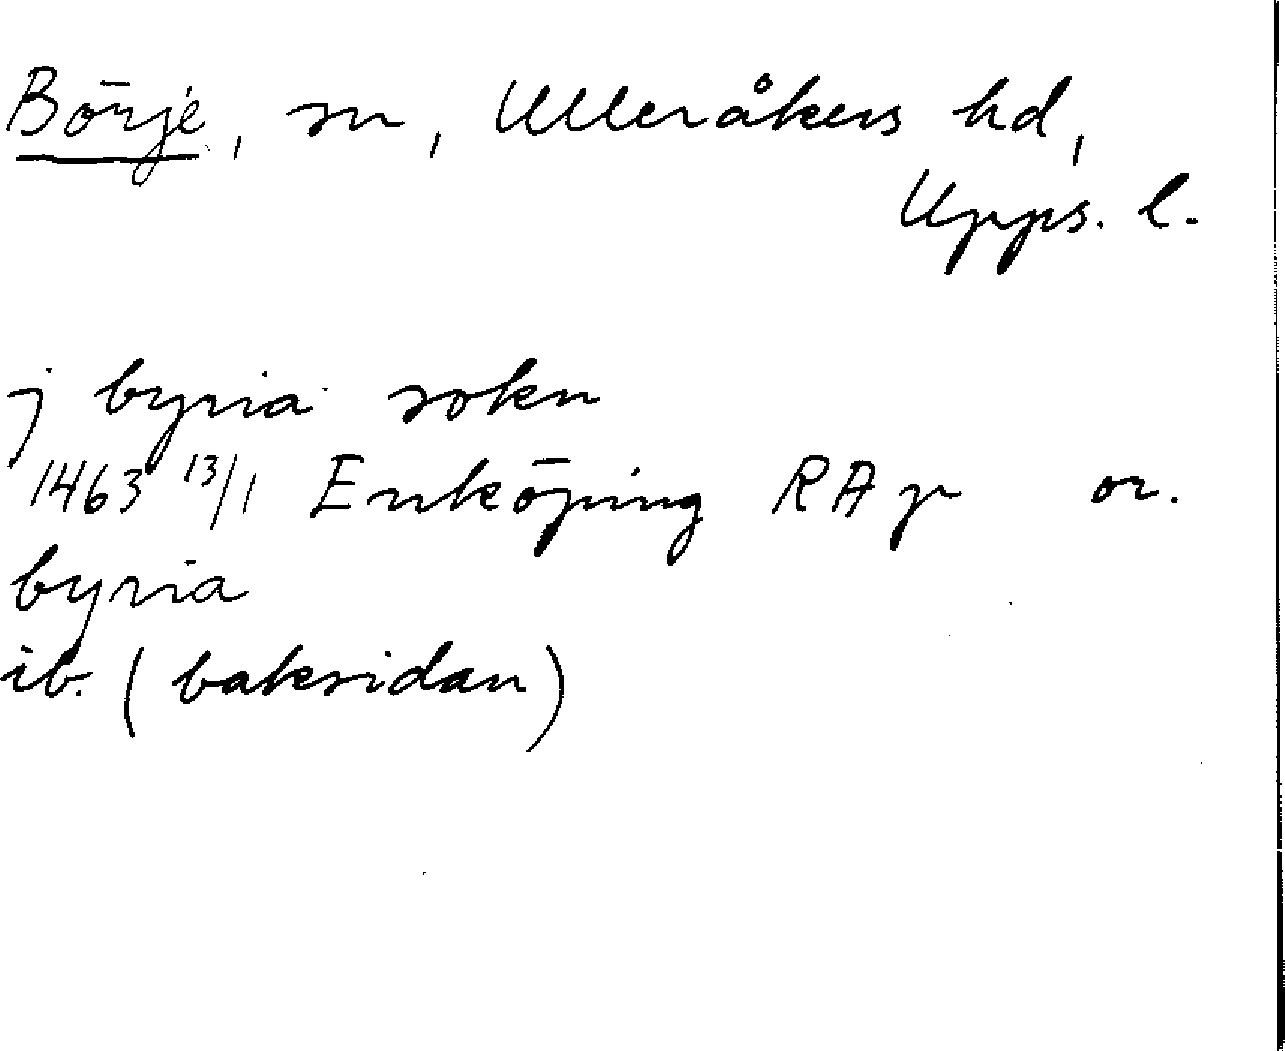 Börje, sn, Ulleråkers hd,
Upps. l.
j byria sokn
1463 13/1 Enköping RAp or.
byria
ib. (baksidan)